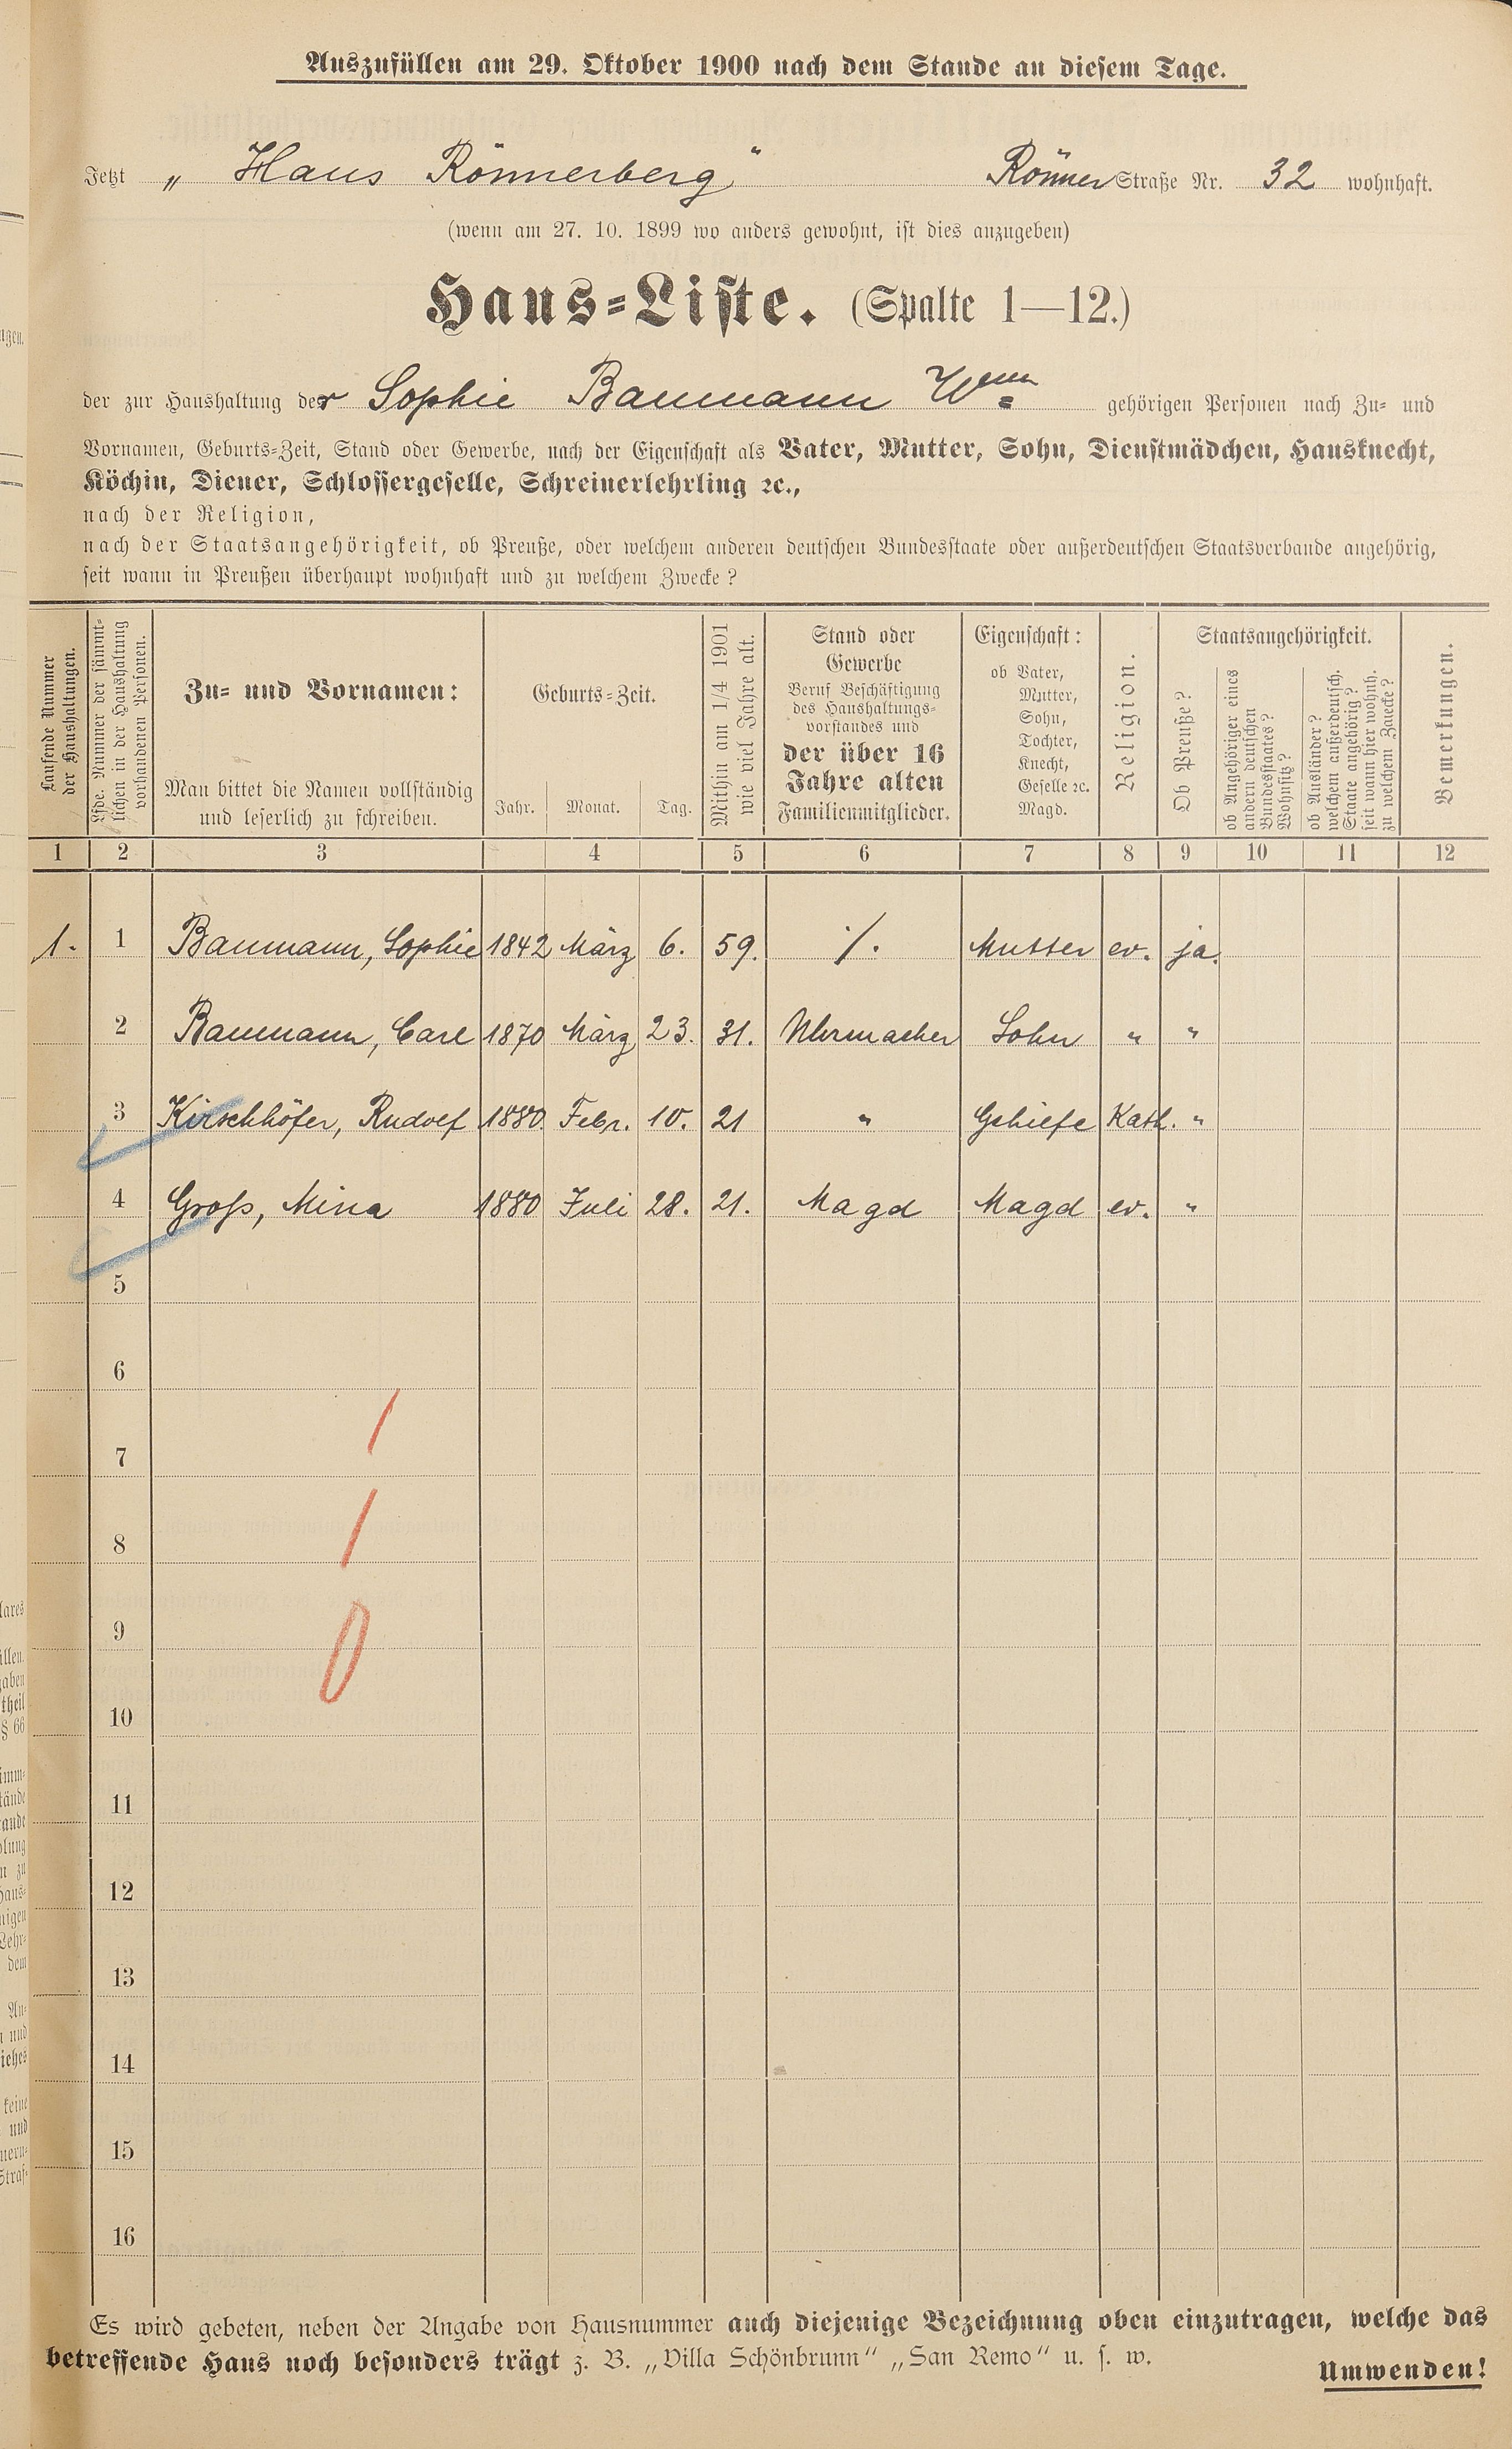 Auszufüllen am 29. Oktober 1900 nach dem Stande an diesem Tage.
Jetzt „ Haus Rönnerberg" Rönner Straße Nr. 32 wohnhaft.
(wenn am 27. 10. 1899 wo anders gewohnt, ist dies anzugeben)
Haus=Liste. (Spalte 1—12.)
der zur Haushaltung der Sophie Baumann Wwe gehörigen Personen nach Zu= und
Vornamen, Geburts=Zeit, Stand oder Gewerbe, nach der Eigenschaft als Vater, Mutter, Sohn, Dienstmädchen, Hausknecht,
Köchin, Diener, Schlossergeselle, Schreinerlehrling ꝛc.,
nach der Religion,
nach der Staatsangehörigkeit, ob Preuße, oder welchem anderen deutschen Bundesstaate oder außerdeutschen Staatsverbande angehörig,
seit wann in Preußen überhaupt wohnhaft und zu welchem Zwecke?
Laufende Nummer
der Haushaltungen.
Lfde. Nummer der sämmt=
lichen in der Haushaltung
vorhandenen Personen.
Zu= und Vornamen:
Man bittet die Namen vollständig
und leserlich zu schreiben.
Geburts=Zeit.
Jahr. Monat. Tag.
Mithin am 1/4 1901
wie viel Jahre alt.
Stand oder
Gewerbe
Beruf Beschäftigung
des Haushaltungs=
vorstandes und
der über 16
Jahre alten
Familienmitglieder.
Eigenschaft:
ob Vater,
Mutter,
Sohn,
Tochter,
Knecht,
Geselle ꝛc.
Magd.
Religion.
Staatsangehörigkeit.
Ob Preuße?
ob Angehöriger eines
andern deutschen
Bundesstaates?
Wohnsitz?
ob Ausländer?
welchem außerdeutsch.
Staate angehörig?
seit wann hier wohnh.
zu welchem Zwecke?
Bemerkungen.
1 2 3 4 5 6 7 8 9 10 11 12
1. 1 Baumann, Sophie 1842 März 6. 59. ·/. Mutter ev. ja.
2 Baumann, Carl 1870 März 23. 31. Uhrmacher Sohn " "
3 Kirschhöfer, Rudolf 1880 Febr. 10. 21 " Gehilfe Kath. "
4 Groß, Mina 1880 Juli 28. 21. Magd Magd ev. "
5
6
7
8
9
10
11
12
13
14
15
16
Es wird gebeten, neben der Angabe von Hausnummer auch diejenige Bezeichnung oben einzutragen, welche das
betreffende Haus noch besonders trägt z. B. „Villa Schönbrunn" „San Remo" u. s. w.
Umwenden!